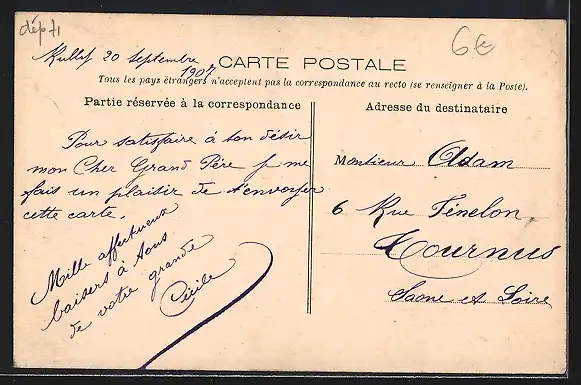 dép 71
6€
Rully 20 septembre
1907
CARTE POSTALE
Tous les pays étrangers n'acceptent pas la correspondance au recto (se renseigner à la Poste).
Partie réservée à la correspondance
Pour satisfaire à ton désir
mon Cher Grand Père je me
fais un plaisir de t'envoyer
cette carte.
Mille affectueux
baisers à tous
de votre grande
Cécile
Adresse du destinataire
Monsieur Adam
6 Rue Fénelon
Tournus
Saone et Loire